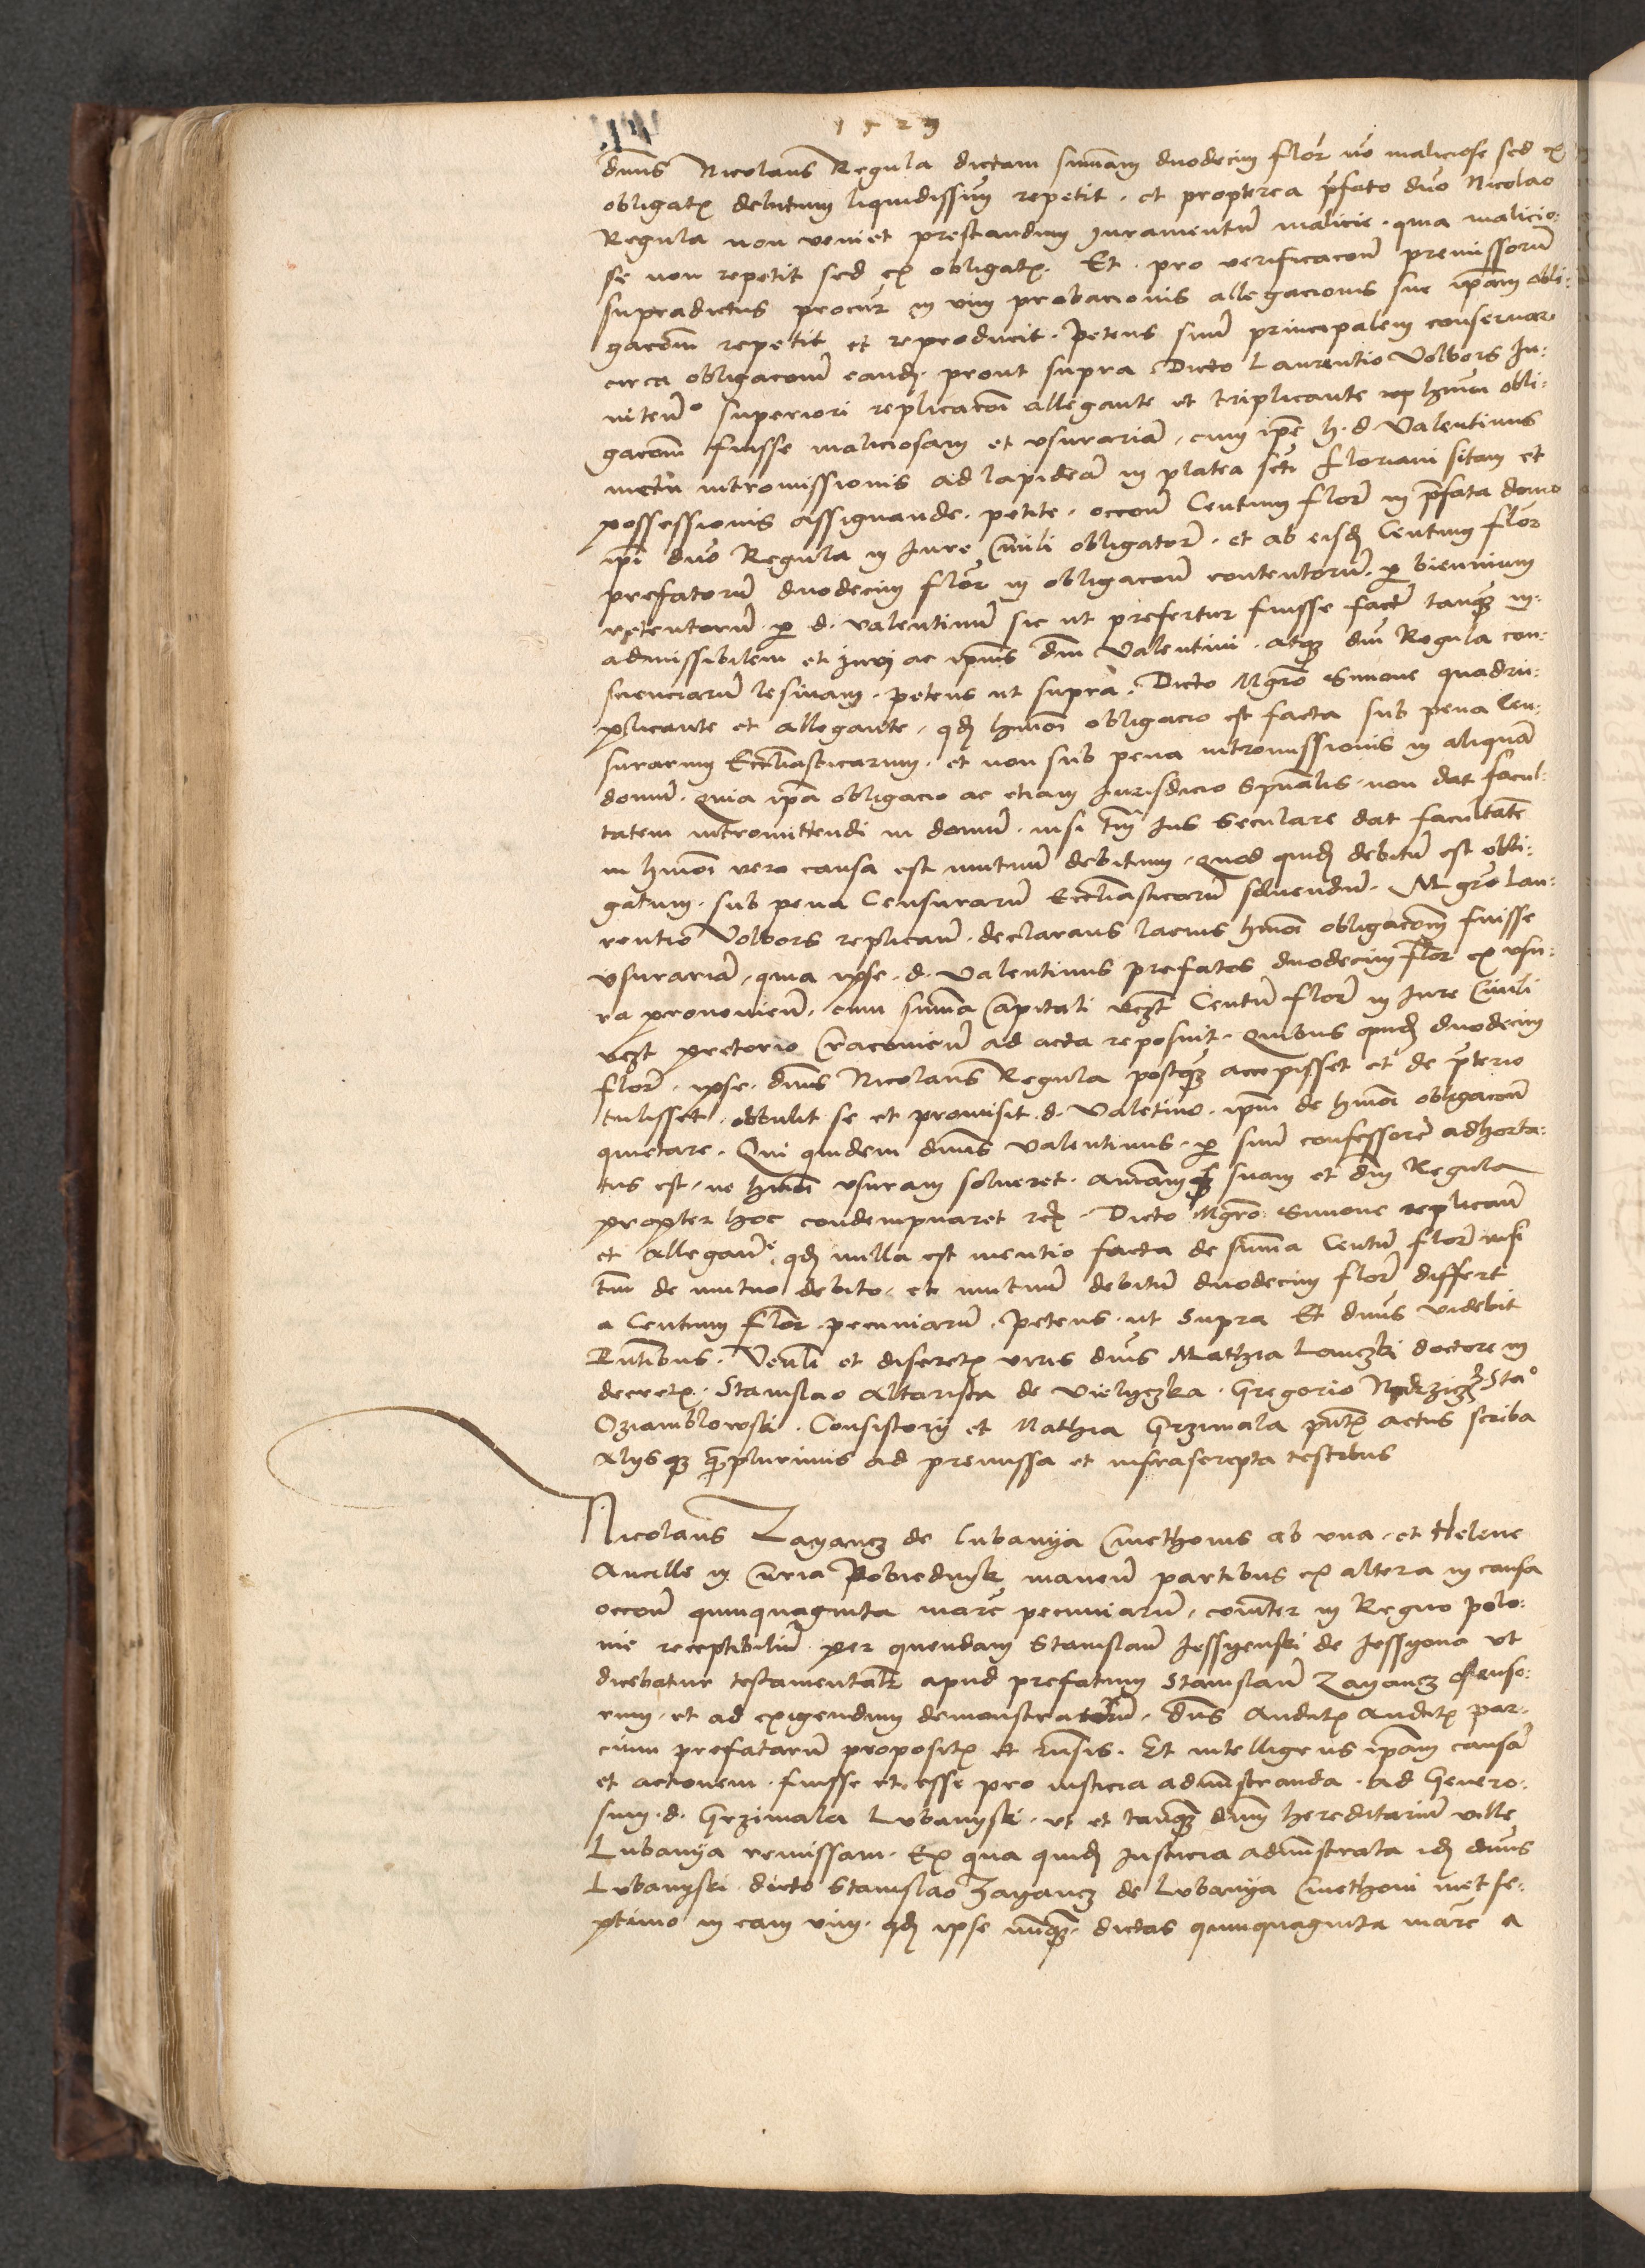 1529
dnus Nicolaus Regula dictam summam duodecim flor no maliciose sed ex
obligatx debitum liquidissium repetit . et propterea pfato dno Nicolao
Regula non veniet prestandum Iuramentum malicie . quia malicio:
se non repetit sed ex obligatx . Et . pro verificacone premissorum
supradictus procur in vim probacionis allegacionis sue ipam obli:
gacoem repetit et reproducit . Petens suum principalem conservare
circa obligaconem eandem . prout supra Dicto Laurentio Volbors In:
superiori replicacoi allegante et triplicante hmoi obli:
gacom fuisse maliciosam et vsurariam , cum ipe h. d. Valentinus
metu intromissionis ad lapideam in platea scti Floriani sitam et
possessionis assignande . petite . occone Centum flor in pfata domo
ipi dno Regula in Iure Ciuili obligatorum . et ab eisdem Centum flor
prefatorum duodecim flor in obligacone contentorum . per biennium
retentorum . per d. valentinum sic ut prefertur fuisse factam tanquam in:
admissibilem et iuri ac ipius dni Valentini . atque dni Regula con:
scienciarum lesiuam . petens ut supra . Dicto Mgro Simone quadru:
plicante et allegante , quod hmoi obligacio est facta sub pena Cen:
surarum Eccliasticarum . et non sub pena intromissionis in aliquam
domum . Quia ipa obligacio ac etiam Iurisdicio Spualis . non dat facul:
tatem intromittendi in domum . nisi tm Ius Seculare dat facultatem
in hmoi vero causa est mutuum debitum , Quod quidem debitum est obli:
gatum . sub pena Censurarum Eccliasticarum soluendum . Mgro Lau:
rentio Volbors replicane . declarans lacius hmoi obligacom fuisse
vsurariam , quia ipse . d. Valentinus prefatos duodecim flor ex vsu:
ra prouenien . cum summa Capitali vezt Centum flor in Iure Ciuili
vezt pretorio Cracouien ad acta reposuit . Quibus quidem duodecim
flor . ipse . dnus Nicolaus Regula postquam accepisset et de pterio
tulisset . obtulit se et promisit d. Valetino . ipm de hmoi obligacone
quietare . Qui quidem dnus valentinus . per suum confessorem adhorta:
tus est , ne hmoi vsuram solueret . animamque suam et dni Regula
propter hoc condempnaret . Dicto Mgro Simone replican
et allegan , quod nulla est mentio facta de summa Centum flor nisi
tm de mutuo debito , et mutuum debitum duodecim flor differt
a Centum flor . pecuniarum . Petens . ut Supra Et dnus videbit
Pntibus . Venli et discretx viris dnis Mathia Lanczki doctore in
decretx . Stanislao Altarista de Vielyczka . Gregorio Sta°
Oziamblowski . Consistorij et Mathia Grzimala pntx actus scriba
Alijsque quamplurimis ad premissa et infrascripta testibus
Nicolaus Zayancz de Lubanya Cmethonis ab vna . et Helene
Ancille in Curia Pobiednik manen partibus ex altera in causa
occone quinquaginta marc pecuniarum , comiter in Regno Polo:
nie receptibilium per quendam Stanislaum Iessyenski de Iessyona ut
dicebatur testamentalr apud prefatum Stanislaum Zayancz
rum , et ad exigendum demonstratarum . dnus Auditx Auditx par:
cium prefatarum propositx et . Et intelligens ipam causam
et actionem . fuisse et esse pro iusticia administranda . ad Genero:
sum . d. Grzimala Lubanyski . ut et tanquam dnm hereditarium ville
Lubanya remissam . Ex qua quidem Iusticia administrata idem dnus
Lubanyski dicto Stanislao Zayancz de Lubanya Cmethoni metse:
ptimo in eam vim . quod ipse nunquam . dictas quinquaginta marc a